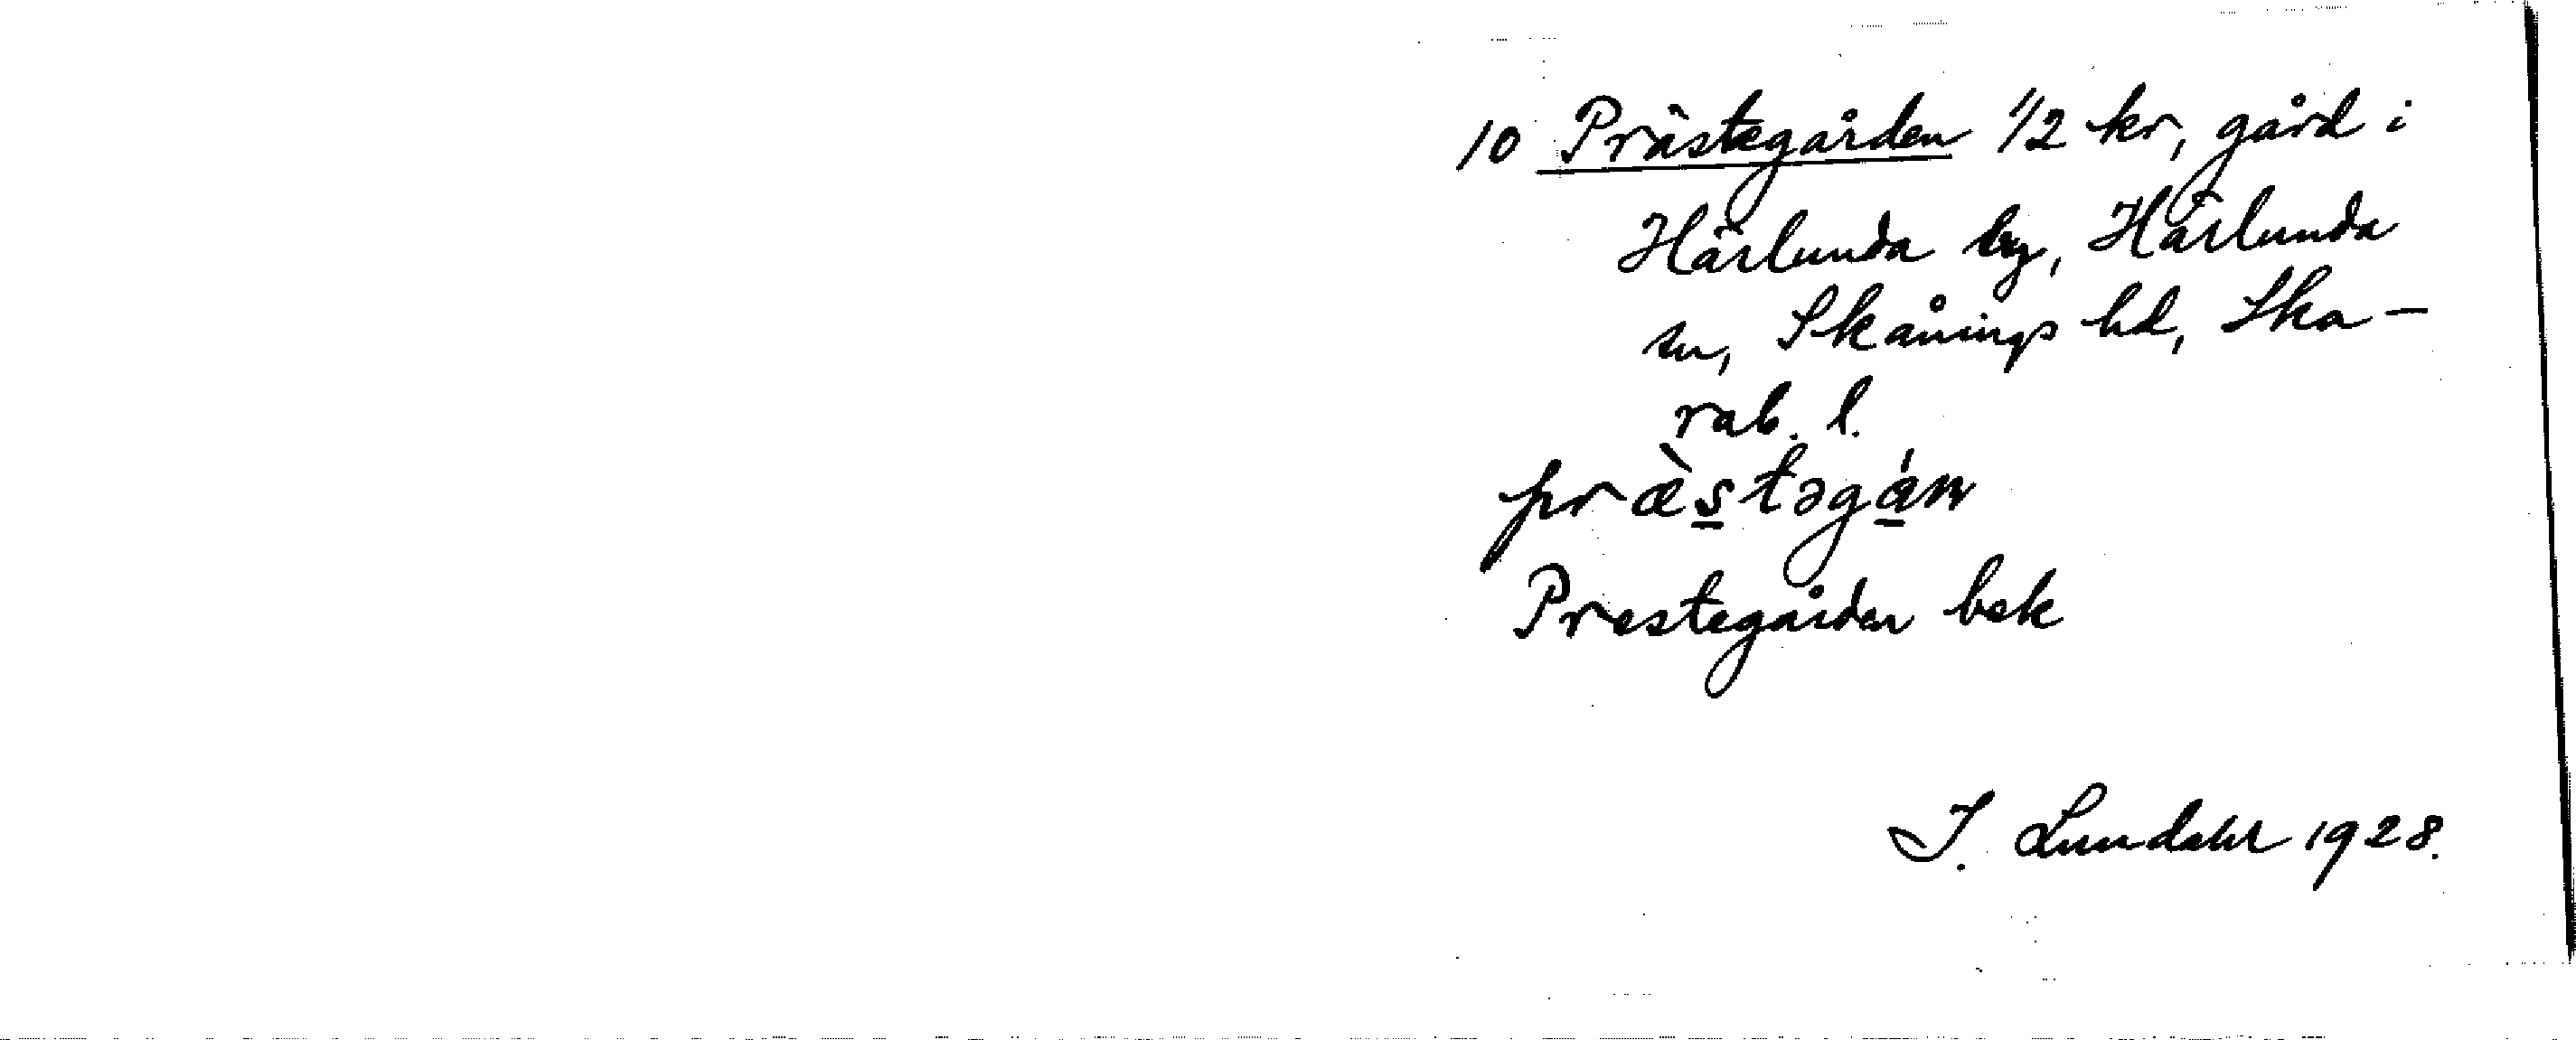 10 Prästegården 1/2 kr, gård i
Härlunda by, Härlunda
sn, Skånings hd, Ska-
rab. l.
præ̀stəgán
Prestegården bek
I. Lundahl 1928.